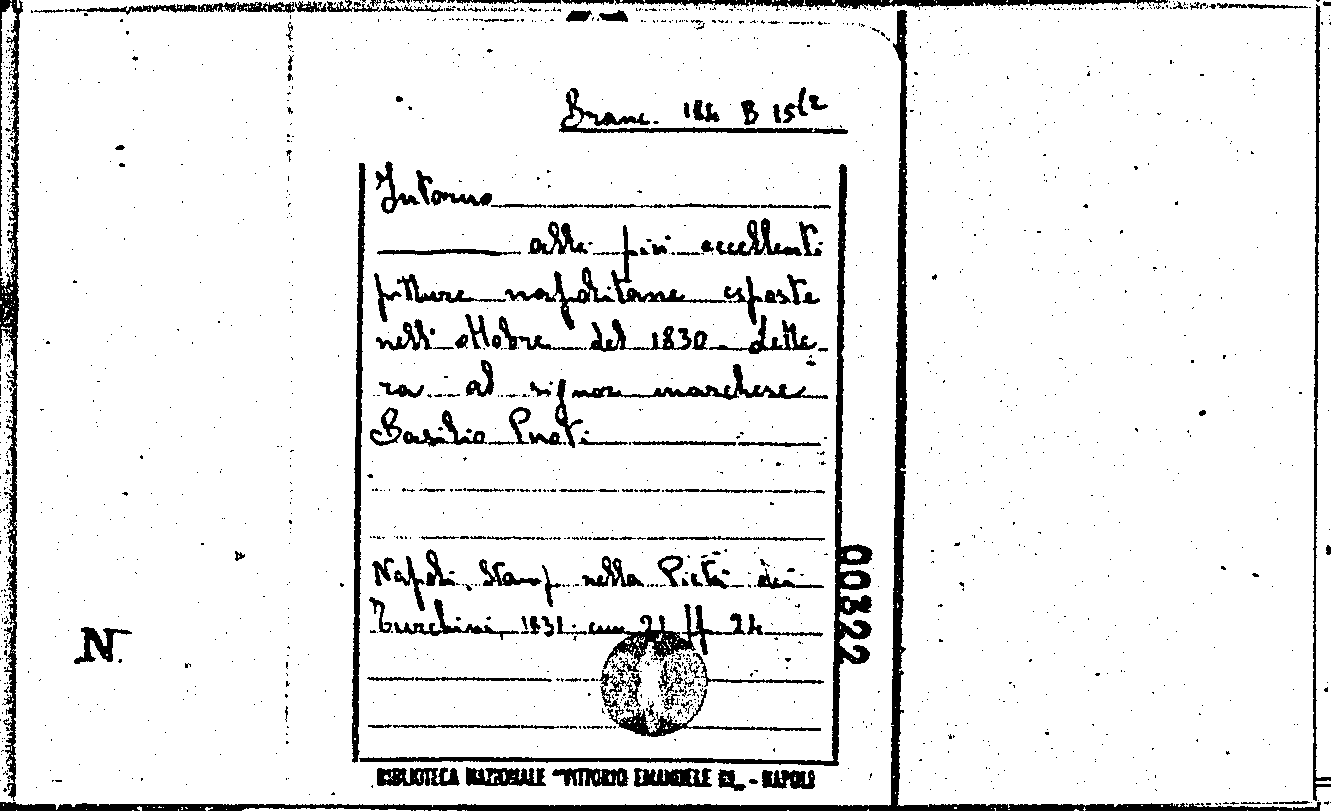 Branc. 184 B 15(2
Intorno
alle più eccellenti
pitture napolitane esposte
nell'ottobre del 1830 - lette-
ra al signor marchese
Basilio Puoti
Napoli, Stamp. nella Pietà dei
Turchini, 1831. cm 21 ff 24
N.
00322
BIBLIOTECA NAZIONALE "VITTORIO EMANUELE III„ - NAPOLI